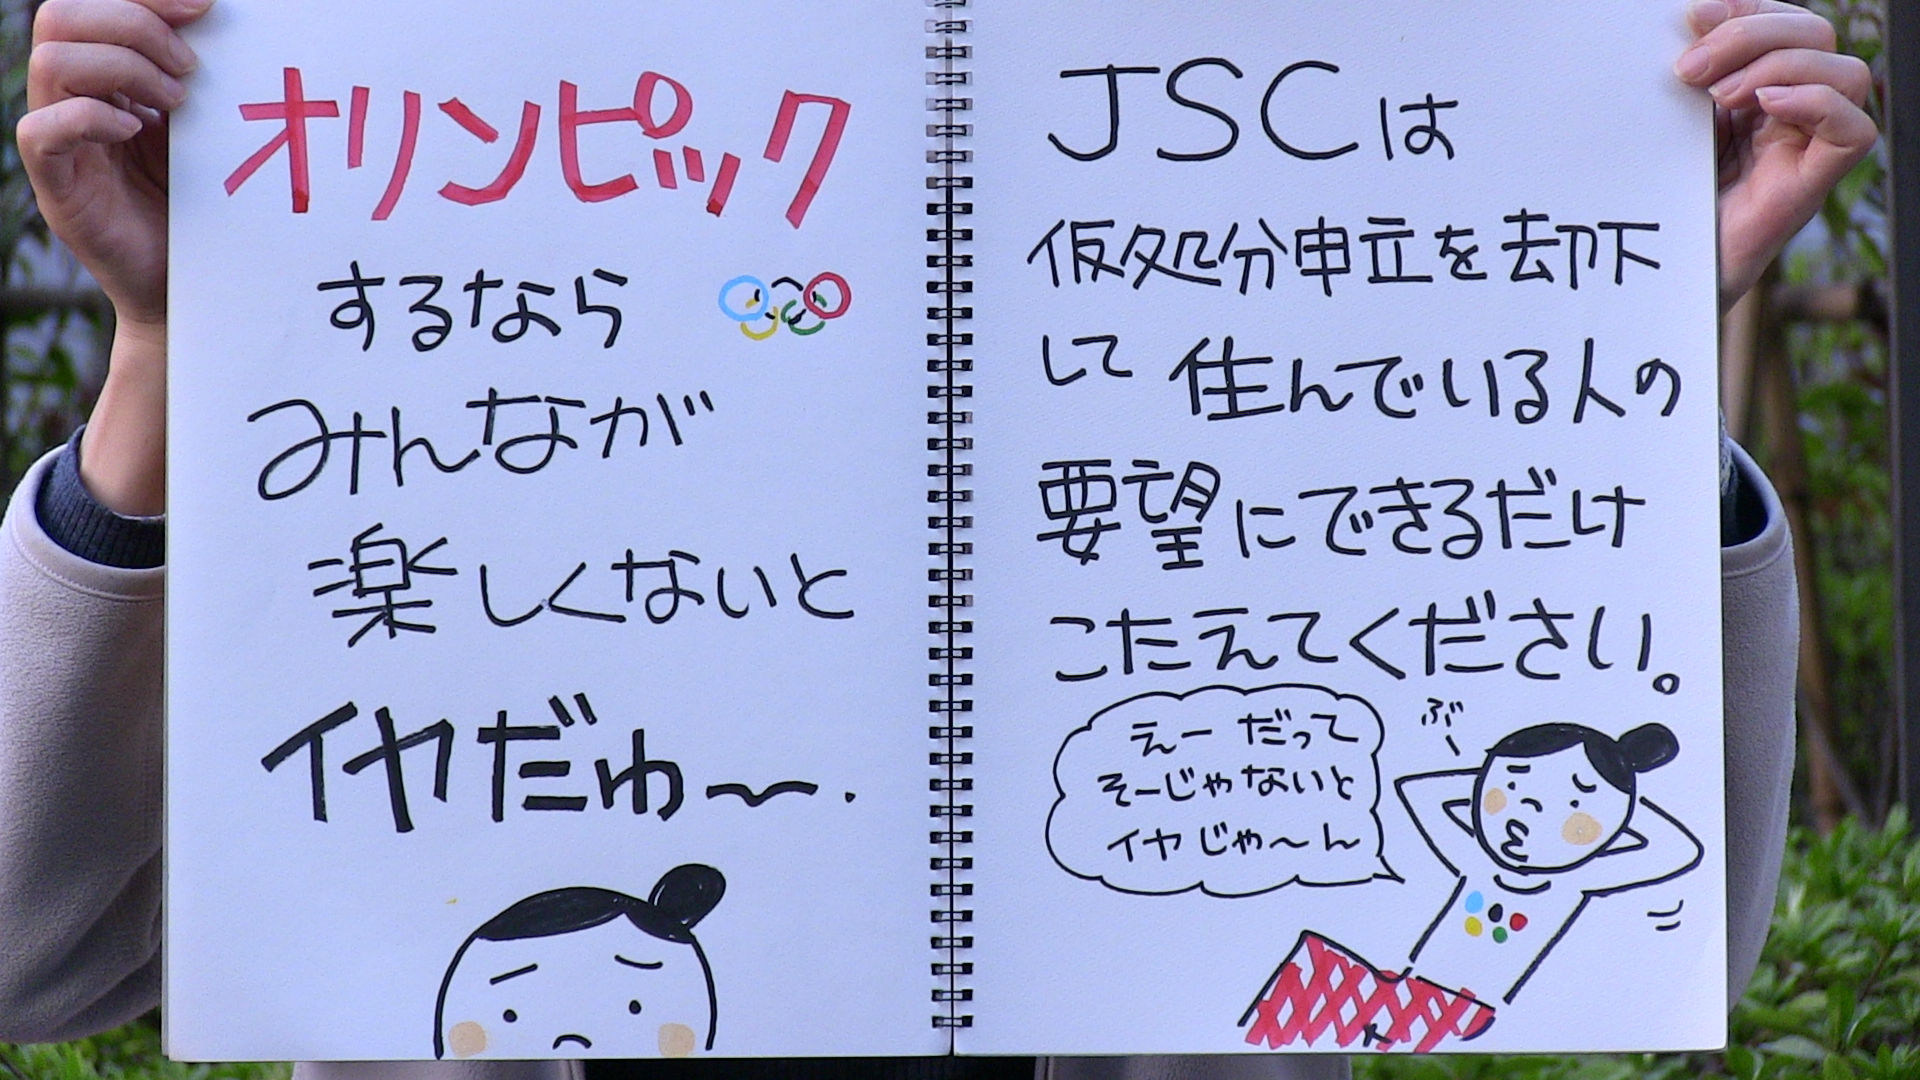 オリンピック
するなら
みんなが
楽しくないと
イヤだゅ〜.
JSCは
仮処分申立を却下
して住んでいる人の
要望にできるだけ
こたえてください。
えーだって
そーじゃないと
イヤじゃ〜ん
ぶー